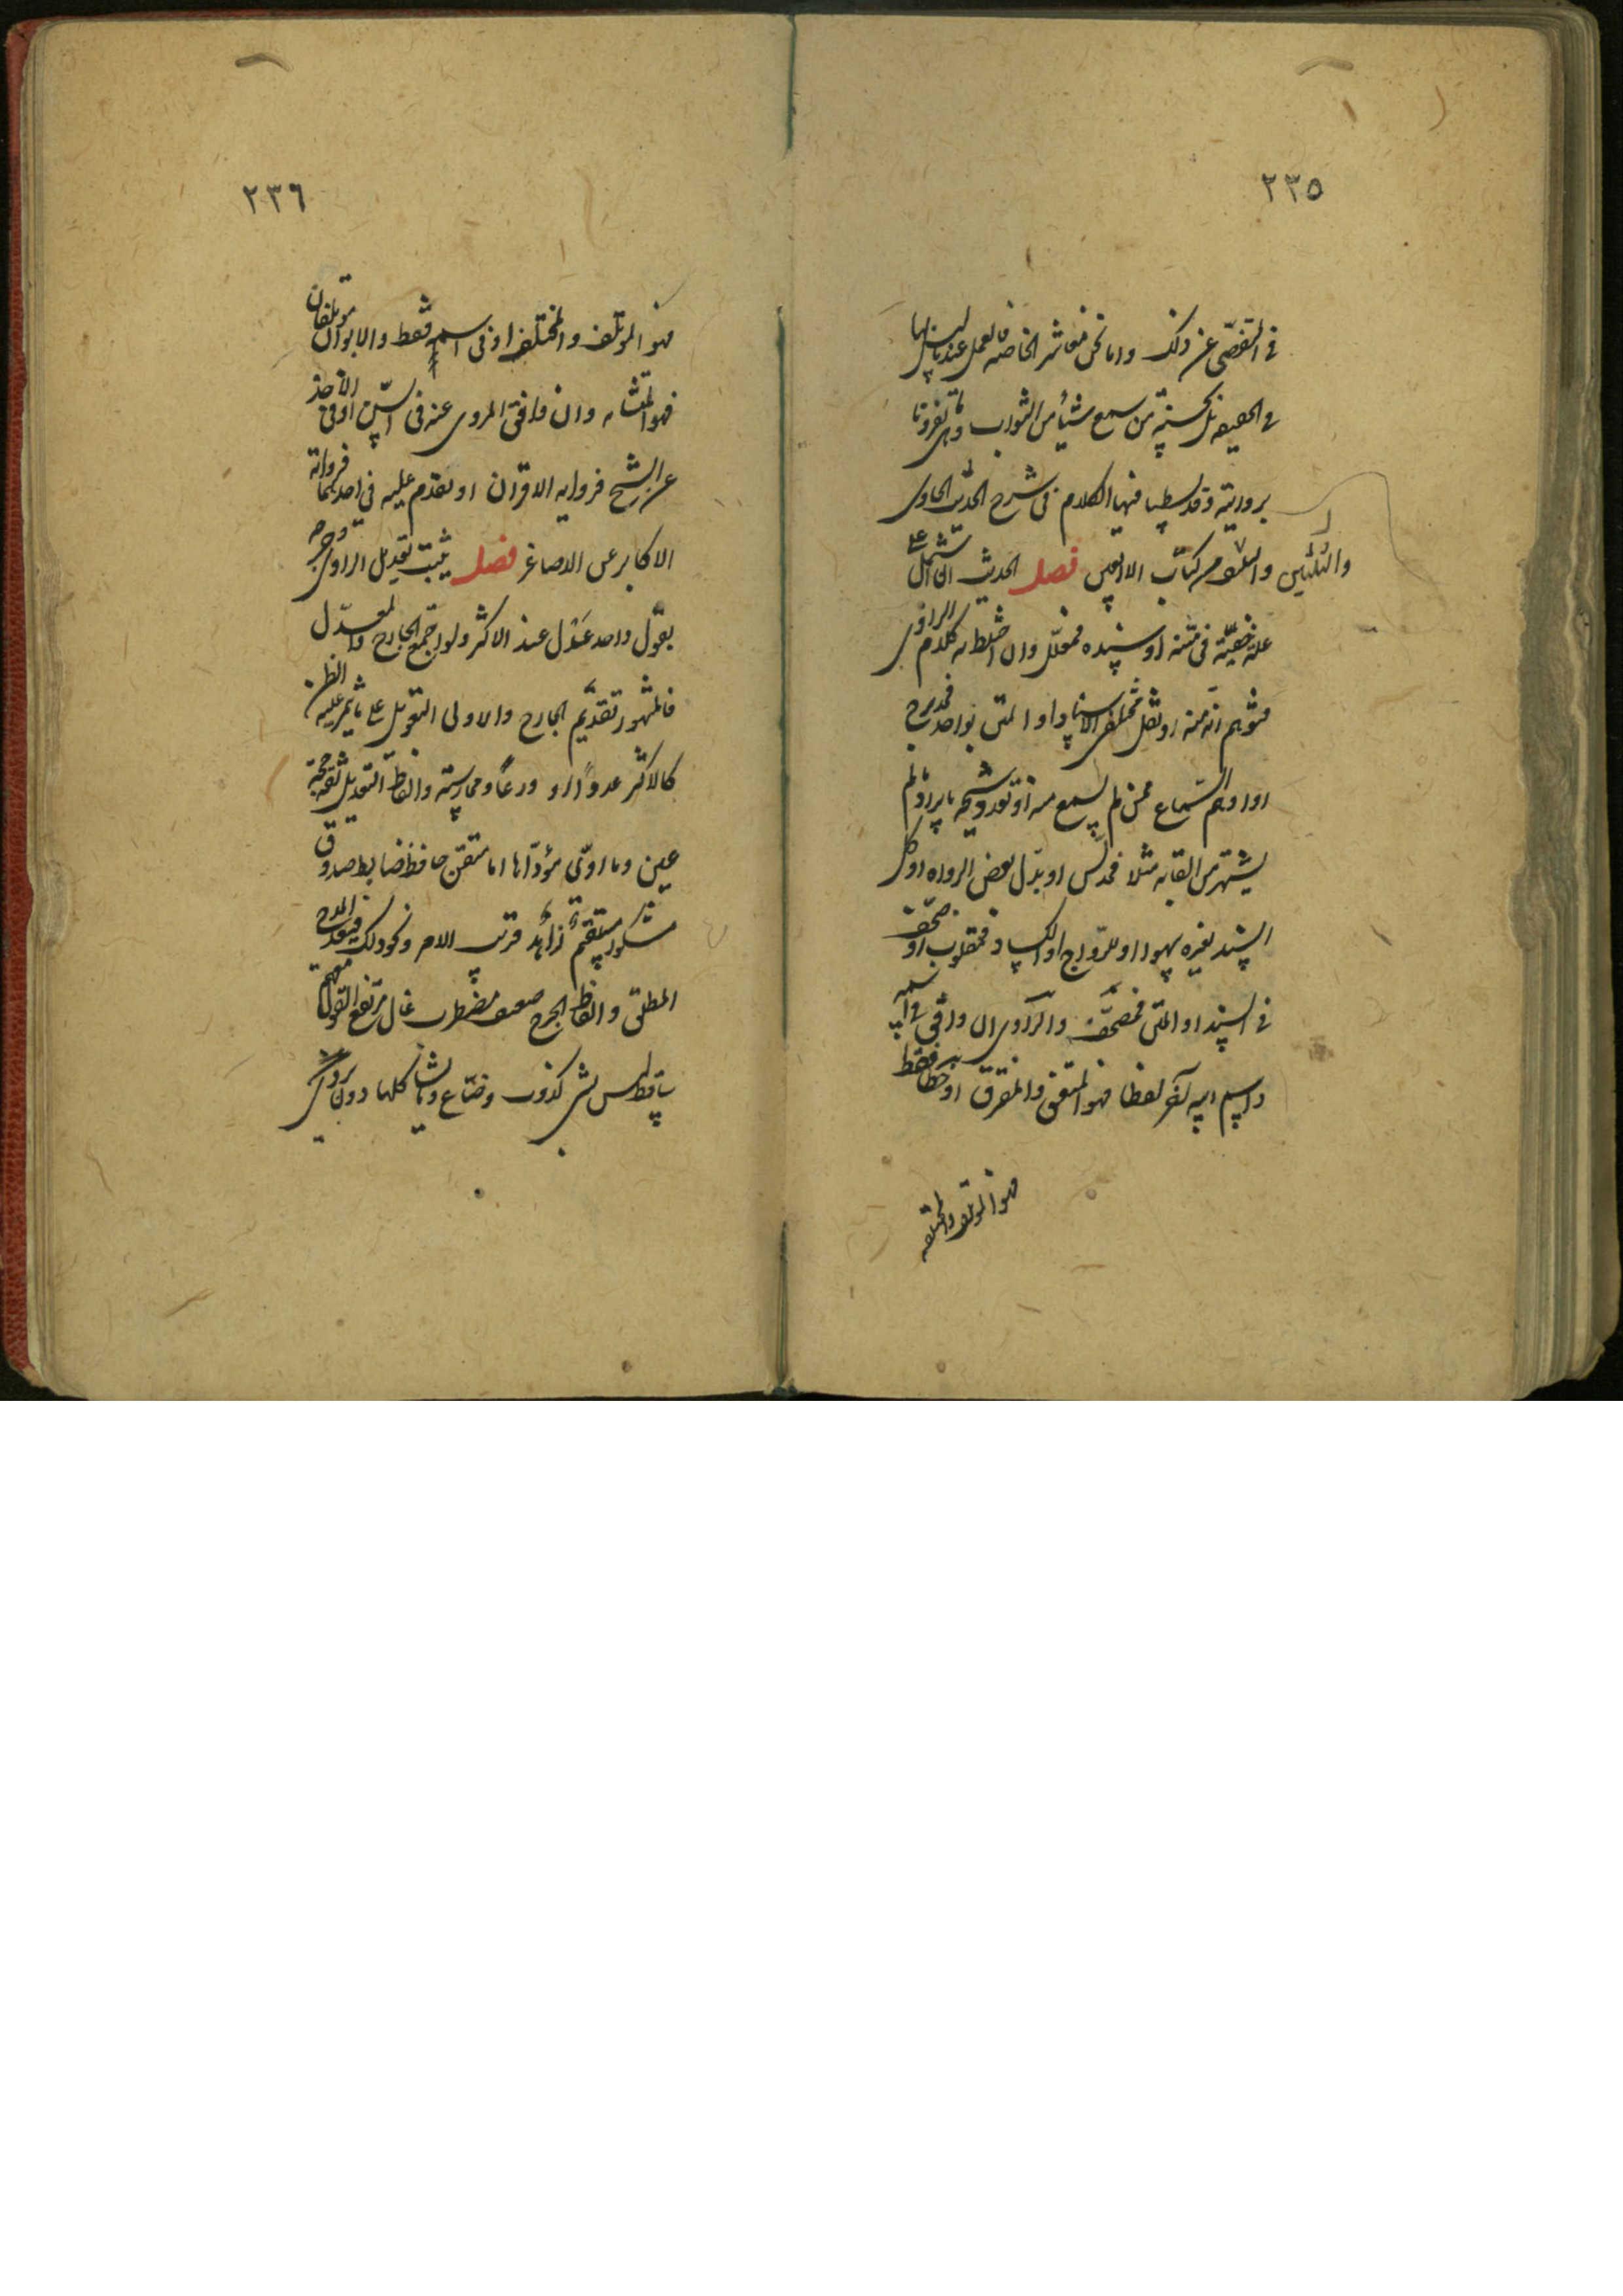 ٢٣٥
في التفصي عن ذلك واما نحن معاشر الخاصة فالعمل عندنا ليس بها
في الحقيقة بل بحسنة من سمع شيئا من الثواب وهي مما تفردنا
بروايته وقد بسطنا فيها الكلام في شرح الحديث الحادي
والثلثين من كتاب الاربعين فصل الحديث ان اشتمل على
علة خفية في متنه او سنده فمعلل وان اختلط به كلام الراوي
فتوهم انه منه او نقل مختلفي الاسناد او المتن بواحد فمدرج
او اوهم السماع ممن لم يسمع منه او تعدد شيخه بايراد ما لم
يشتهر من القابه مثلا فمدلس او بدل بعض الرواه او كل
السند بغيره سهوا او للرواج او الكساد فمقلوب او صحف
في السند او المتن فمصحف والراوي ان وافق في اسمه
واسم ابيه آخر لفظا فهو المتفق والمفترق او خطا فقط
فهو المؤتلف والمختلف
٢٣٦
فهو المؤتلف والمختلف او في اسمه فقط والابوان مؤتلفان
فهو المتشابه وان وافق المروي عنه في السن او في الاخذ
عن الشيخ فرواية الاقران او تقدم عليه في احدهما فرواية
الاكابر عن الاصاغر فصل يثبت تعديل الراوي وجرحه
بقول واحد عدل عند الاكثر ولو اجتمع الجارح والمعدل
فالمشهور تقديم الجارح والاولى التعويل على ما يثمر عليه الظن
كالاكثر عددا او ورعا وممارسته والفاظ التعديل ثقة حجة
عين وما ادى مؤداها اما متقن حافظ ضابط صدوق
مشكور مستقيم زاهد قريب الامر ونحو ذلك فيفيد المدح
المطلق والفاظ الجرح ضعيف مضطرب غال مرتفع القول متهم
ساقط ليس بشي كذوب وضاع وما شاكلها دون يروي